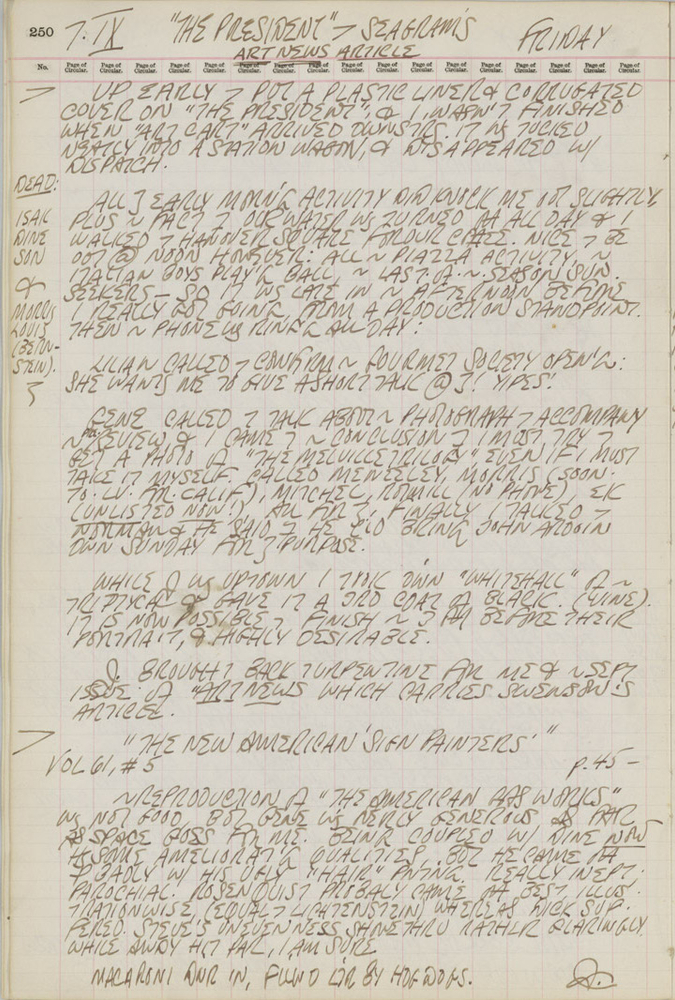 250 7·IX "THE PRESIDENT" → SEAGRAM'S FRIDAY
ART NEWS ARTICLE
No. Page of Circular. Page of Circular. Page of Circular. Page of Circular. Page of Circular. Page of Circular. Page of Circular. Page of Circular. Page of Circular. Page of Circular. Page of Circular. Page of Circular. Page of Circular. Page of Circular. Page of Circular. Page of Circular. Page of Circular.
UP EARLY → PUT A PLASTIC LINER & CORRUGATED
COVER ON "THE PRESIDENT", & I WASN'T FINISHED
WHEN "ART CART" ARRIVED DWNSTRS. IT WS TUCKED
NEATLY INTO A STATION WAGON, & DISAPPEARED W/
DISPATCH.
DEAD:
ISAK
DINE
SON
&
MORRIS
LOUIS
(BERN-
STEIN).
ALL EARLY MORN'G ACTIVITY DID KNOCK ME OUT SLIGHTLY,
PLUS ~ FACT OUR WATER WS TURNED OFF ALL DAY & I
WALKED → HANOVER SQUARE FOR OUR CRAZE. NICE → BE
OUT @ NOON HOWEVER: ALL ~ PIAZZA ACTIVITY, ~
ITALIAN BOYS PLAY'G BALL, ~ LAST OF ~ SEASON SUN
SEEKERS — SO IT WS LATE IN ~ AFTERNOON BEFORE
I REALLY GOT GOING, FROM A PRODUCTION STANDPOINT.
THEN ~ PHONE WS RING'G ALL DAY:
LILIAN CALLED → CONFIRM ~ GOURMET SOCIETY OPEN'G:
SHE WANTS ME TO GIVE A SHORT TALK @ IT! YIPES!
GENE CALLED → TALK ABOUT ~ PHOTOGRAPH → ACCOMPANY
~ PREVIEW & I CAME → ~ CONCLUSION I MUST TRY →
GET A PHOTO OF "THE MELVILLE TRILOGY" EVEN IF I MUST
TAKE IT MYSELF. CALLED MENEELEY, MORRIS (SOON
TO LV. FR. CALIF), MITCHEL, ROMILL (NO PHONE), EK
(UNLISTED NOW!) ALL FR IT. FINALLY I TALKED →
NORMAN & HE SAID HE WLD BRING JOHN ARDOIN
DWN SUNDAY FR PURPOSE.
WHILE J WS UPTOWN I TOOK DWN "WHITEHALL" OF ~
TRIPTYCH & GAVE IT A 3RD COAT OF BLACK. (VINE).
IT IS NOW POSSIBLE → FINISH ~ BEFORE THEIR
PORTRAIT, & HIGHLY DESIRABLE.
J. BROUGHT BACK TURPENTINE FR ME & ~ SEPT
ISSUE OF "ART NEWS WHICH CARRIES SWENSON'S
ARTICLE.
"THE NEW AMERICAN 'SIGN PAINTERS'"
VOL 61, # 5 p. 45 —
~ REPRODUCTION OF "THE AMERICAN GAS WORKS"
WS NOT GOOD, BUT GENE WS NERLY GENEROUS AS FAR
AS SPACE GOES FR ME. BEING COUPLED W/ DINE NOW
HS SOME AMELIORAT'G QUALITIES, BUT HE CAME OFF
BADLY W/ HIS UGLY "HAIR" PNTNG. REALLY INEPT:
PAROCHIAL. ROSENQUIST PROBALY CAME OFF BEST ILLUS-
TRATIONWISE, (EQUAL → LICHTENSTEIN) WHEREAS DICK SUF-
FERED. STEVE'S UNEVENNESS SHNE THRU RATHER GLARINGLY.
WHILE ANDY HIT PAR, I AM SURE
MACARONI DNR IN, FLWD BY HOT DOGS. J.